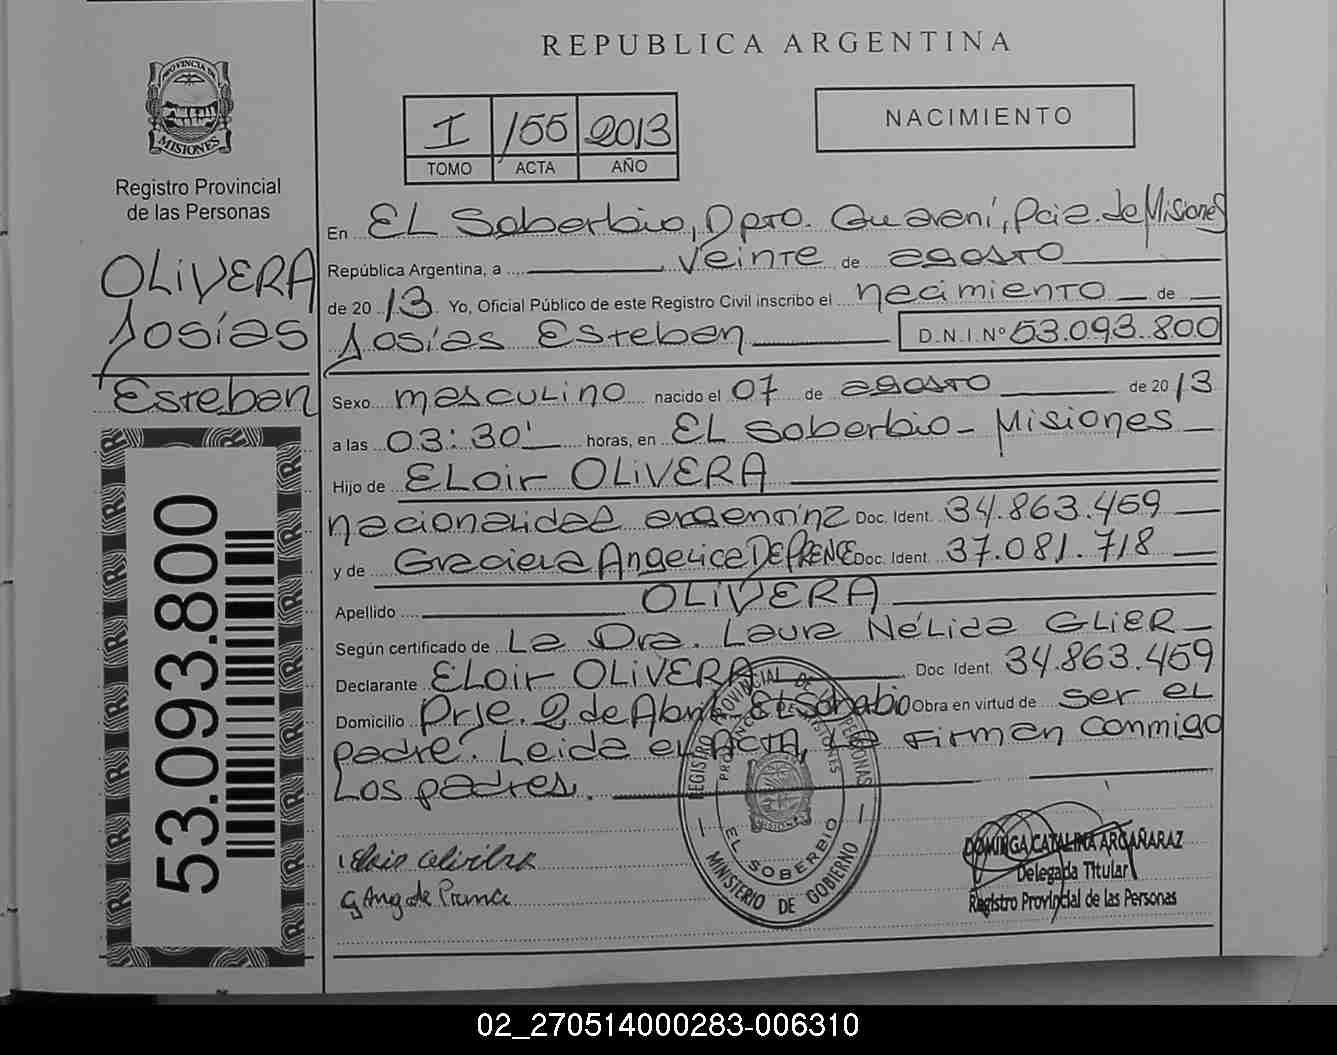 REPUBLICA ARGENTINA
PROVINCIA DE
MISIONES
Registro Provincial
de las Personas
I /55 2013
TOMO ACTA AÑO
NACIMIENTO
OLIVERA
Josías
Esteban
53.093.800
En EL Soberbio, Dpto. Guaraní, Pcia. de Misiones
República Argentina, a veinte de agosto
de 2013 Yo, Oficial Público de este Registro Civil inscribo el nacimiento de
Josías Esteban D.N.I.Nº 53.093.800
Sexo masculino nacido el 07 de agosto de 2013
a las 03:30' horas, en EL Soberbio - Misiones
Hijo de ELoir OLIVERA
nacionalidad argentina Doc. Ident. 34.863.459
y de Graciela Angelica DE PRENCE Doc. Ident. 37.081.718
Apellido OLIVERA
Según certificado de La Dra. Laura NéLida GLIER
Declarante ELoir OLIVERA Doc Ident. 34.863.459
Domicilio Prje. 2 de Abril - El Soberbio Obra en virtud de ser el
padre. Leida el ACTA, La Firman conmigo
Los padres.
REGISTRO PROVINCIAL DE LAS PERSONAS
PROVINCIA DE MISIONES
EL SOBERBIO
MINISTERIO DE GOBIERNO
DOMINGA CATALINA ARGAÑARAZ
Delegada Titular
Registro Provincial de las Personas
02_270514000283-006310